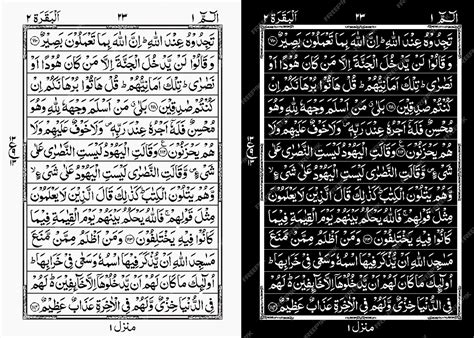 الٓمّٓ ١
٢٣
اَلْبَقَرَة ٢
تَجِدُوْهُ عِنْدَ اللّٰهِ ؕ اِنَّ اللّٰهَ بِمَا تَعْمَلُوْنَ بَصِيْرٌ
وَ قَالُوْا لَنْ يَّدْخُلَ الْجَنَّةَ اِلَّا مَنْ كَانَ هُوْدًا اَوْ
نَصٰرٰى ؕ تِلْكَ اَمَانِيُّهُمْ ؕ قُلْ هَاتُوْا بُرْهَانَكُمْ اِنْ
كُنْتُمْ صٰدِقِيْنَ بَلٰى ۗ مَنْ اَسْلَمَ وَجْهَهٗ لِلّٰهِ وَهُوَ
مُحْسِنٌ فَلَهٗۤ اَجْرُهٗ عِنْدَ رَبِّهٖ ۪ وَلَا خَوْفٌ عَلَيْهِمْ وَلَا
هُمْ يَحْزَنُوْنَ وَقَالَتِ الْيَهُوْدُ لَيْسَتِ النَّصٰرٰى عَلٰى
شَىْءٍ ۪ وَّقَالَتِ النَّصٰرٰى لَيْسَتِ الْيَهُوْدُ عَلٰى شَىْءٍ ۙ
وَّهُمْ يَتْلُوْنَ الْكِتٰبَ ؕ كَذٰلِكَ قَالَ الَّذِيْنَ لَا يَعْلَمُوْنَ
مِثْلَ قَوْلِهِمْ ۚ فَاللّٰهُ يَحْكُمُ بَيْنَهُمْ يَوْمَ الْقِيٰمَةِ فِيْمَا
كَانُوْا فِيْهِ يَخْتَلِفُوْنَ وَمَنْ اَظْلَمُ مِمَّنْ مَّنَعَ
مَسٰجِدَ اللّٰهِ اَنْ يُّذْكَرَ فِيْهَا اسْمُهٗ وَسَعٰى فِىْ خَرَابِهَا ؕ
اُولٰٓئِكَ مَا كَانَ لَهُمْ اَنْ يَّدْخُلُوْهَاۤ اِلَّا خَآئِفِيْنَ ؕ لَهُمْ
فِى الدُّنْيَا خِزْىٌ وَّلَهُمْ فِى الْاٰخِرَةِ عَذَابٌ عَظِيْمٌ
منزل ١
الٓمّٓ ١
٢٣
اَلْبَقَرَة ٢
تَجِدُوْهُ عِنْدَ اللّٰهِ ؕ اِنَّ اللّٰهَ بِمَا تَعْمَلُوْنَ بَصِيْرٌ
وَ قَالُوْا لَنْ يَّدْخُلَ الْجَنَّةَ اِلَّا مَنْ كَانَ هُوْدًا اَوْ
نَصٰرٰى ؕ تِلْكَ اَمَانِيُّهُمْ ؕ قُلْ هَاتُوْا بُرْهَانَكُمْ اِنْ
كُنْتُمْ صٰدِقِيْنَ بَلٰى ۗ مَنْ اَسْلَمَ وَجْهَهٗ لِلّٰهِ وَهُوَ
مُحْسِنٌ فَلَهٗۤ اَجْرُهٗ عِنْدَ رَبِّهٖ ۪ وَلَا خَوْفٌ عَلَيْهِمْ وَلَا
هُمْ يَحْزَنُوْنَ وَقَالَتِ الْيَهُوْدُ لَيْسَتِ النَّصٰرٰى عَلٰى
شَىْءٍ ۪ وَّقَالَتِ النَّصٰرٰى لَيْسَتِ الْيَهُوْدُ عَلٰى شَىْءٍ ۙ
وَّهُمْ يَتْلُوْنَ الْكِتٰبَ ؕ كَذٰلِكَ قَالَ الَّذِيْنَ لَا يَعْلَمُوْنَ
مِثْلَ قَوْلِهِمْ ۚ فَاللّٰهُ يَحْكُمُ بَيْنَهُمْ يَوْمَ الْقِيٰمَةِ فِيْمَا
كَانُوْا فِيْهِ يَخْتَلِفُوْنَ وَمَنْ اَظْلَمُ مِمَّنْ مَّنَعَ
مَسٰجِدَ اللّٰهِ اَنْ يُّذْكَرَ فِيْهَا اسْمُهٗ وَسَعٰى فِىْ خَرَابِهَا ؕ
اُولٰٓئِكَ مَا كَانَ لَهُمْ اَنْ يَّدْخُلُوْهَاۤ اِلَّا خَآئِفِيْنَ ؕ لَهُمْ
فِى الدُّنْيَا خِزْىٌ وَّلَهُمْ فِى الْاٰخِرَةِ عَذَابٌ عَظِيْمٌ
منزل ١